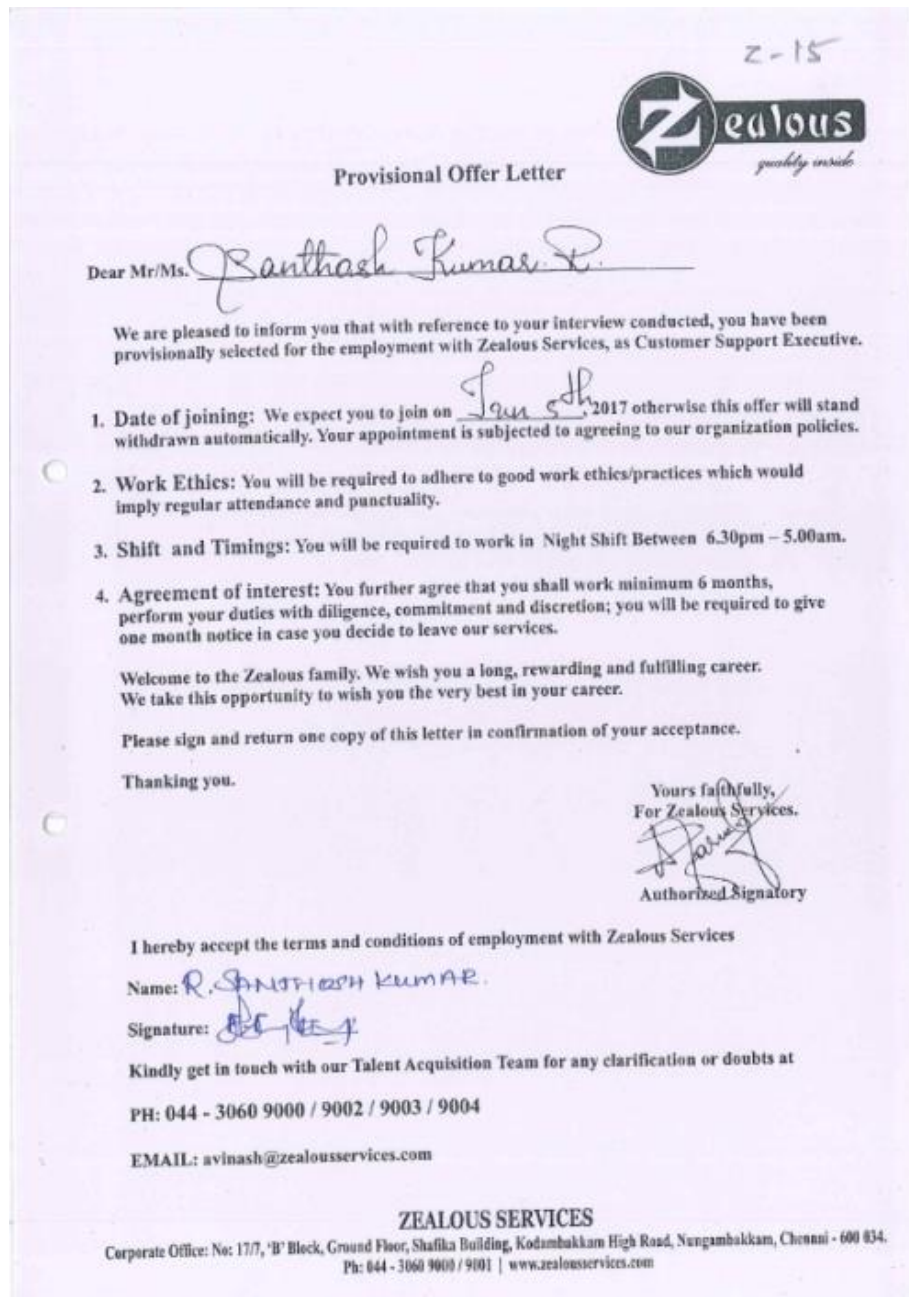 Z-15
Zealous
quality inside
Provisional Offer Letter
Dear Mr/Ms. Santhosh Kumar. R.
We are pleased to inform you that with reference to your interview conducted, you have been
provisionally selected for the employment with Zealous Services, as Customer Support Executive.
1. Date of joining: We expect you to join on Jan 5th, 2017 otherwise this offer will stand
withdrawn automatically. Your appointment is subjected to agreeing to our organization policies.
2. Work Ethics: You will be required to adhere to good work ethics/practices which would
imply regular attendance and punctuality.
3. Shift and Timings: You will be required to work in Night Shift Between 6.30pm – 5.00am.
4. Agreement of interest: You further agree that you shall work minimum 6 months,
perform your duties with diligence, commitment and discretion; you will be required to give
one month notice in case you decide to leave our services.
Welcome to the Zealous family. We wish you a long, rewarding and fulfilling career.
We take this opportunity to wish you the very best in your career.
Please sign and return one copy of this letter in confirmation of your acceptance.
Thanking you.
Yours faithfully,
For Zealous Services.
Authorized Signatory
I hereby accept the terms and conditions of employment with Zealous Services
Name: R. SANTHOSH KUMAR.
Signature:
Kindly get in touch with our Talent Acquisition Team for any clarification or doubts at
PH: 044 - 3060 9000 / 9002 / 9003 / 9004
EMAIL: avinash@zealousservices.com
ZEALOUS SERVICES
Corporate Office: No: 17/7, 'B' Block, Ground Floor, Shafika Building, Kodambakkam High Road, Nungambakkam, Chennai - 600 034.
Ph: 044 - 3060 9000 / 9001 | www.zealousservices.com